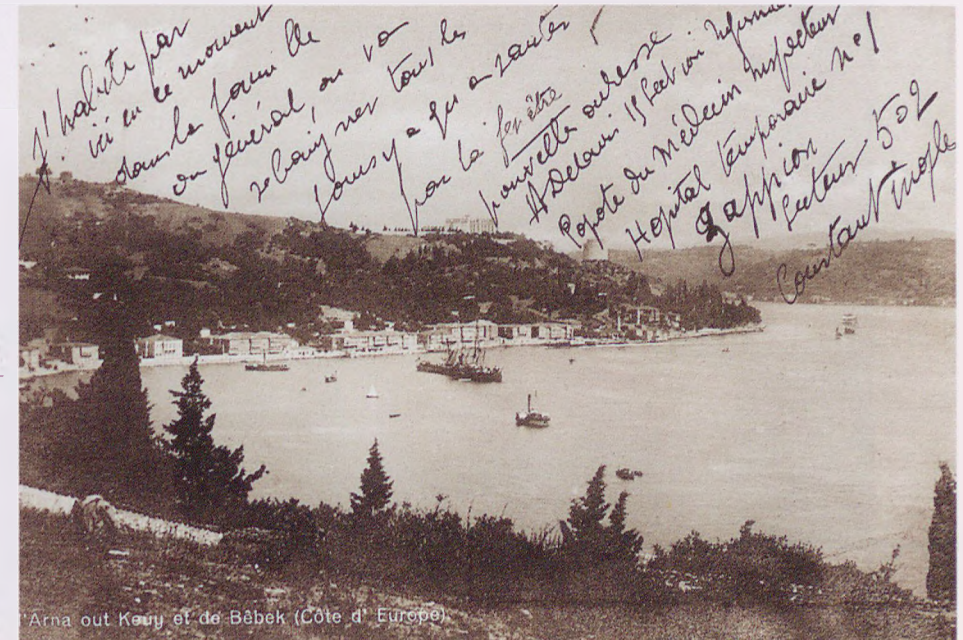 J'habite par
ici en ce moment
dans la famille
en général, on va
se baigner tous les
jours y a qu'a sauter
par la fenêtre
nouvelle adresse
A Delaris 1ª Section Infirmier
Popote du Médecin Inspecteur
Hopital temporaire nº 1
Zappion
Secteur 502
Constantinople
'Arna out Keuy et de Bêbek (Côte d' Europe)